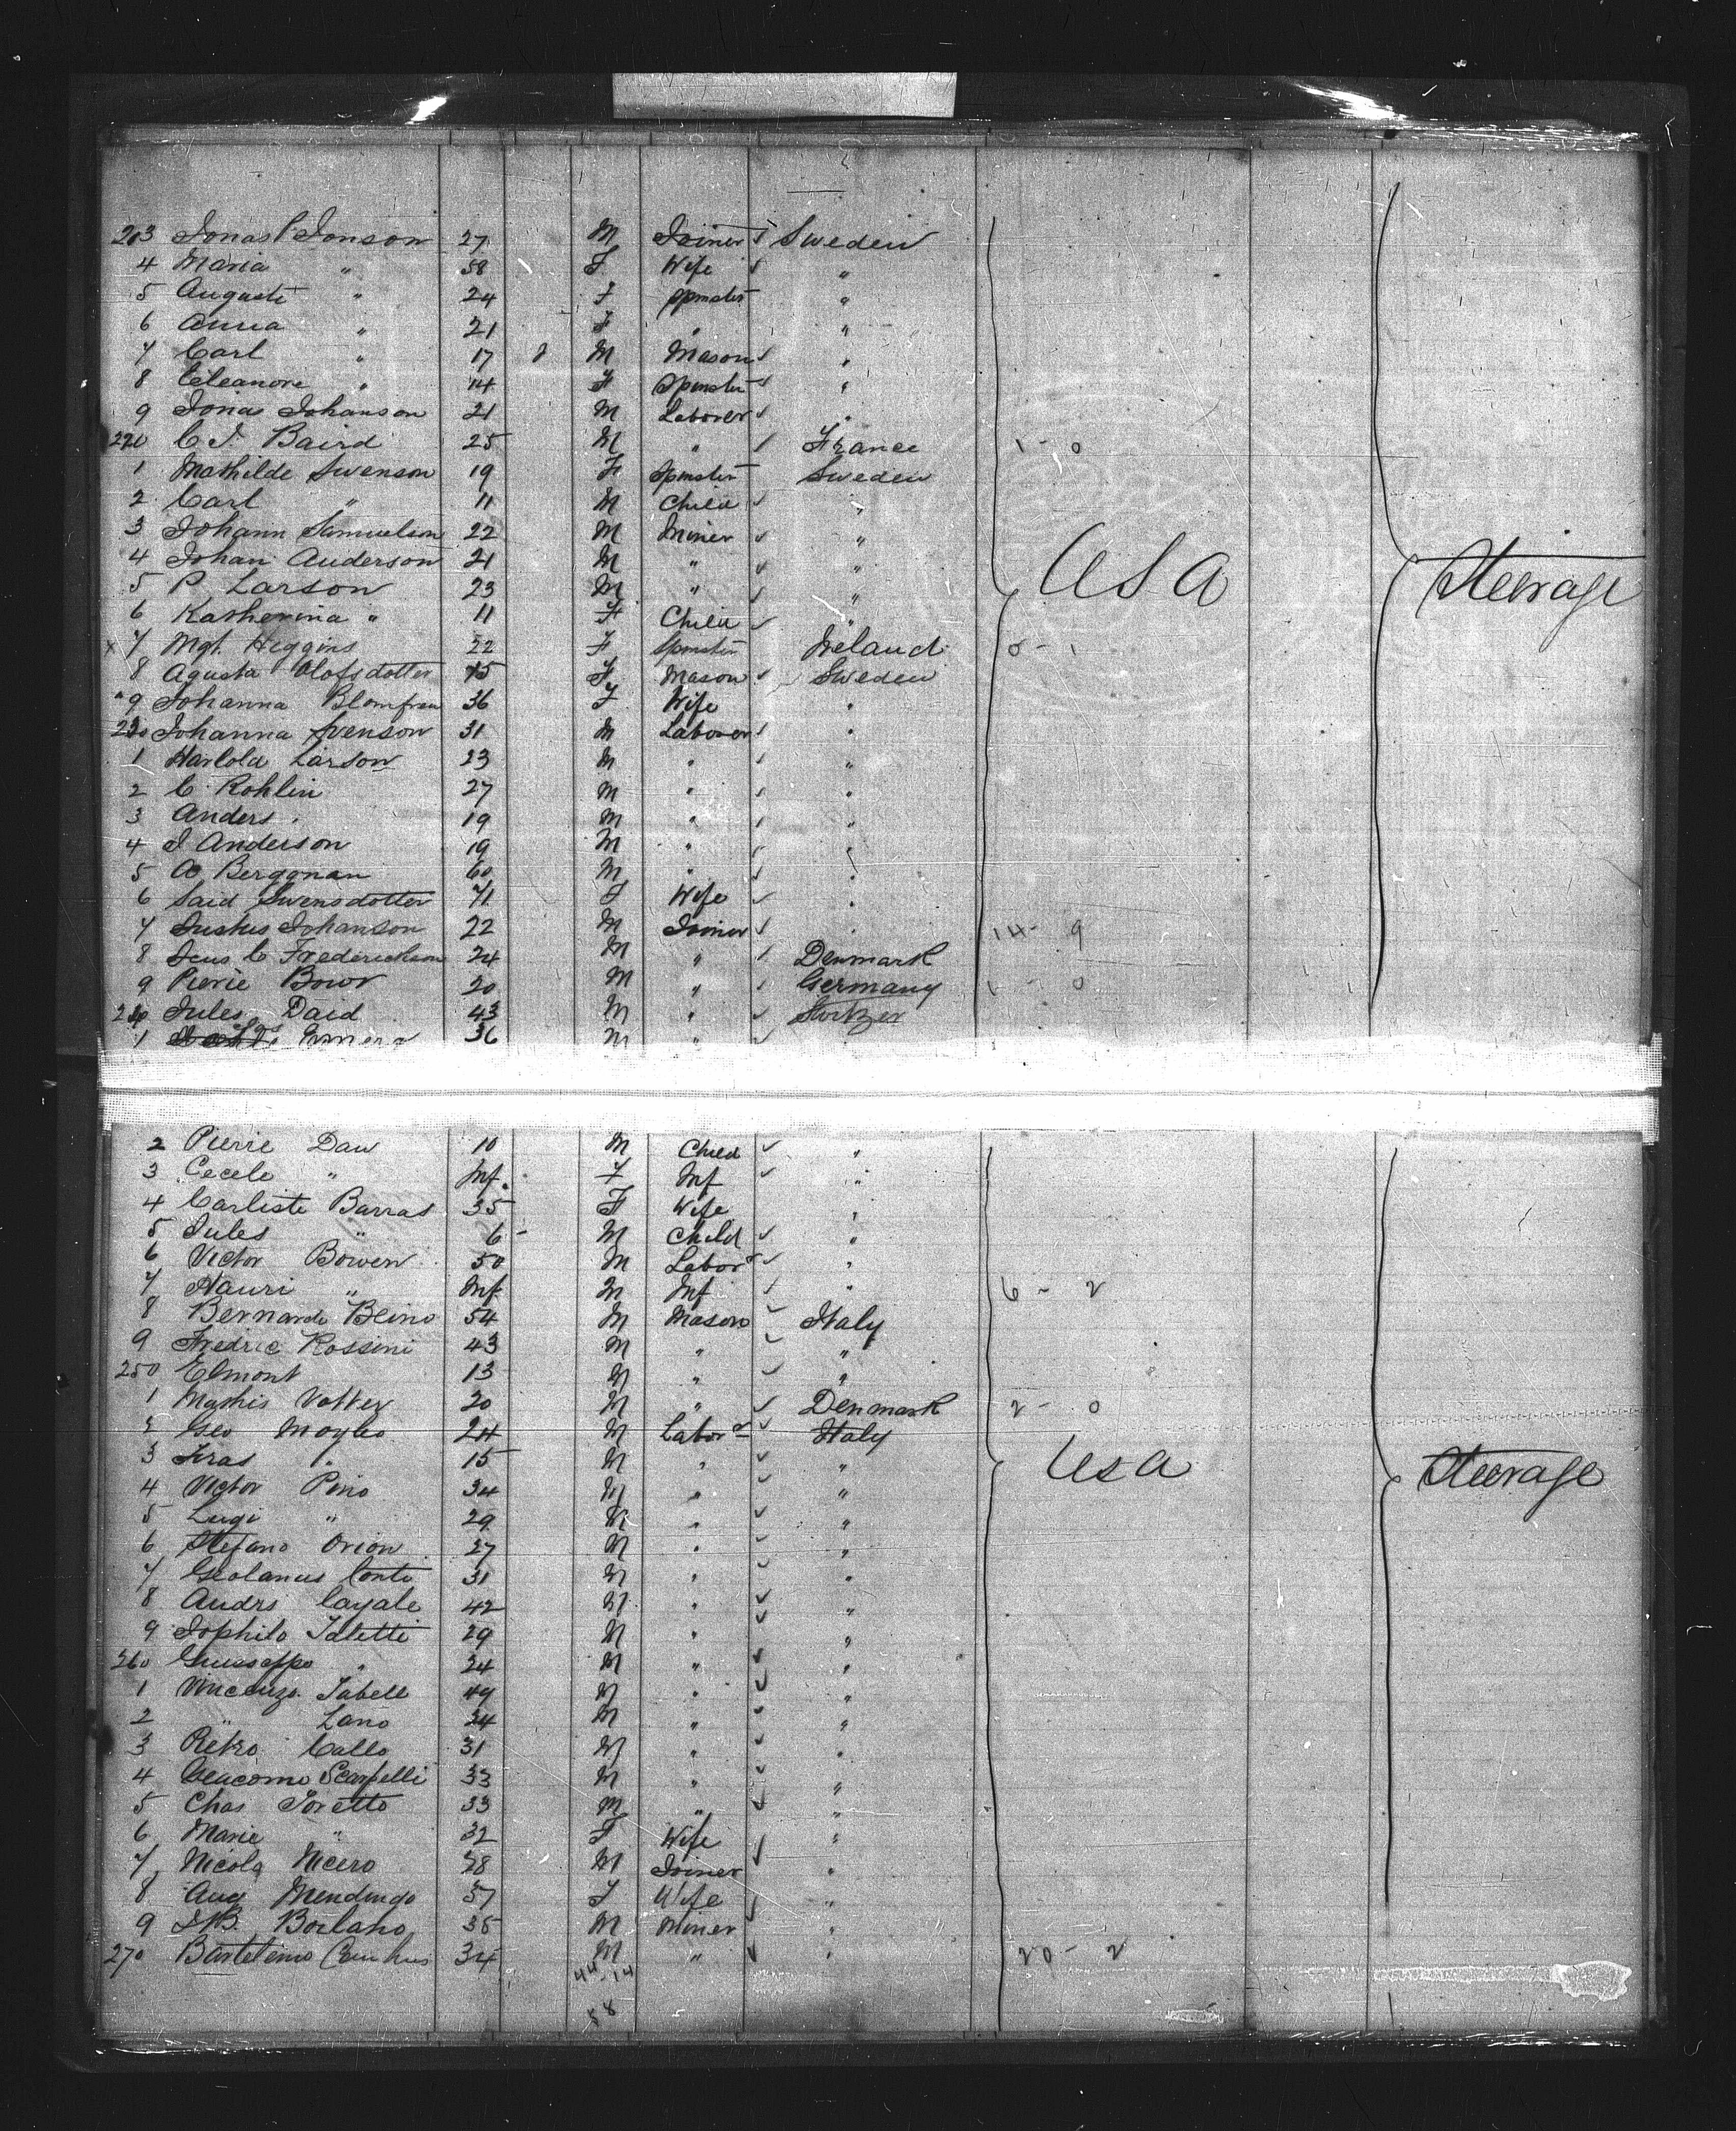 203 Jonas P Jonson 27 M Joiner Sweden
4 Maria " 58 F Wife "
5 Auguste " 24 F Spinster "
6 Anna " 21 F " "
7 Carl " 17 M Mason "
8 Eleanore " 14 F Spinster "
9 Jonas Johanson 21 M Laborer "
220 C J Baird 25 M " France 1 - 0
1 Mathilde Swenson 19 F Spinster Sweden
2 Carl " 11 M Child "
3 Johann Samuelson 22 M Miner "
4 Johan Anderson 21 M " " USA Steerage
5 P. Larson 23 M " "
6 Katherina " 11 F Child "
x 7 Mgt. Higgins 22 F Spinster Ireland 0 - 1
8 Agusta Olofsdotter 15 F Mason Sweden
9 Johanna Blomfrau 36 F Wife "
230 Johanna Svenson 31 M Laborer "
1 Harlold Larson 23 M " "
2 C. Rohlin 27 M " "
3 Anders " 19 M " "
4 J Anderson 19 M " "
5 A Berggnan 60 M " "
6 Said Swensdotter 71 F Wife "
7 Justus Johanson 22 M Joiner " 14 - 9
8 Jens C Frederickson 24 M " Denmark
9 Pierie Bowr 20 M " Germany 1 - 0
240 Jules Daid 43 M " Switzer
1 36 M "
2 Pierre Daw 10 M Child "
3 Cecele " Inf. F Inf "
4 Carliste Barras 35 F Wife "
5 Jules " 6 M Child "
6 Victor Bowen 50 M Labor "
7 Hauri " Inf M Inf " 6 - 2
8 Bernardo Beino 54 M Mason Italy
9 Fredric Rossini 43 M " "
250 Elmont 13 M " "
1 Mathis Votter 20 M " Denmark 2 - 0
2 Geo Moyleo 24 M Labor Italy
3 Fras " 15 M " " USA Steerage
4 Victor Pino 34 M " "
5 Luigi " 29 M " "
6 Stefano Orion 27 M " "
7 Geolanus Conti 31 M " "
8 Andri Cayale 42 M " "
9 Jophilo Taletti 29 M " "
260 Guiseppo " 24 M " "
1 Vincenzo Tabell 49 M " "
2 " Lano 34 M " "
3 Pietro Callo 31 M " "
4 Geacomo Scarfelli 33 M " "
5 Chas Toretto 33 M " "
6 Marie " 32 F Wife "
7 Nicola Nicero 28 M Joiner "
8 Aug Mendingo 37 F Wife "
9 J.B. Borlano 38 M Miner "
270 Bartelemo 34 M " " 20 - 2
44 - 14
58